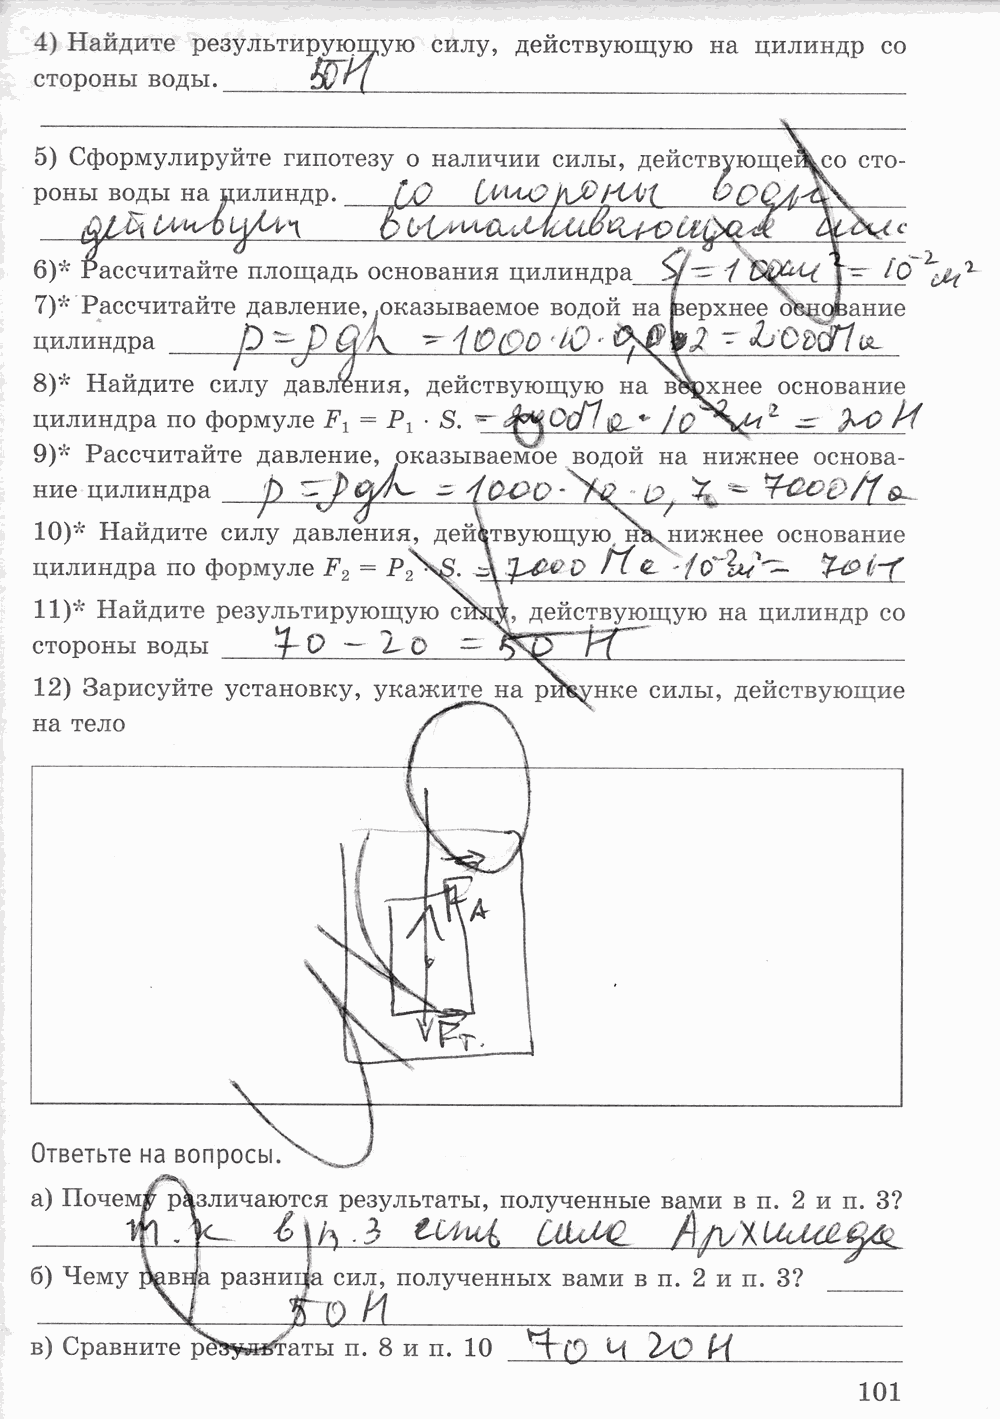 4) Найдите результирующую силу, действующую на цилиндр со
стороны воды. 50 Н
5) Сформулируйте гипотезу о наличии силы, действующей со сто-
роны воды на цилиндр. со стороны воды
действует выталкивающая сила
6)* Рассчитайте площадь основания цилиндра S = 100см² = 10⁻² м²
7)* Рассчитайте давление, оказываемое водой на верхнее основание
цилиндра p = ρgh = 1000·10· = 2000Па
8)* Найдите силу давления, действующую на верхнее основание
цилиндра по формуле F₁ = P₁ · S. = 2000Па · 10⁻² м² = 20 Н
9)* Рассчитайте давление, оказываемое водой на нижнее основа-
ние цилиндра p = ρgh = 1000·10·0,7 = 7000Па
10)* Найдите силу давления, действующую на нижнее основание
цилиндра по формуле F₂ = P₂ · S. = 7000 Па ·10⁻²м² = 70Н
11)* Найдите результирующую силу, действующую на цилиндр со
стороны воды 70 – 20 = 50 Н
12) Зарисуйте установку, укажите на рисунке силы, действующие
на тело
F А
F т.
Ответьте на вопросы.
а) Почему различаются результаты, полученные вами в п. 2 и п. 3?
т. к в п. 3 есть сила Архимеда
б) Чему равна разница сил, полученных вами в п. 2 и п. 3?
50 Н
в) Сравните результаты п. 8 и п. 10 70 и 20 Н
101